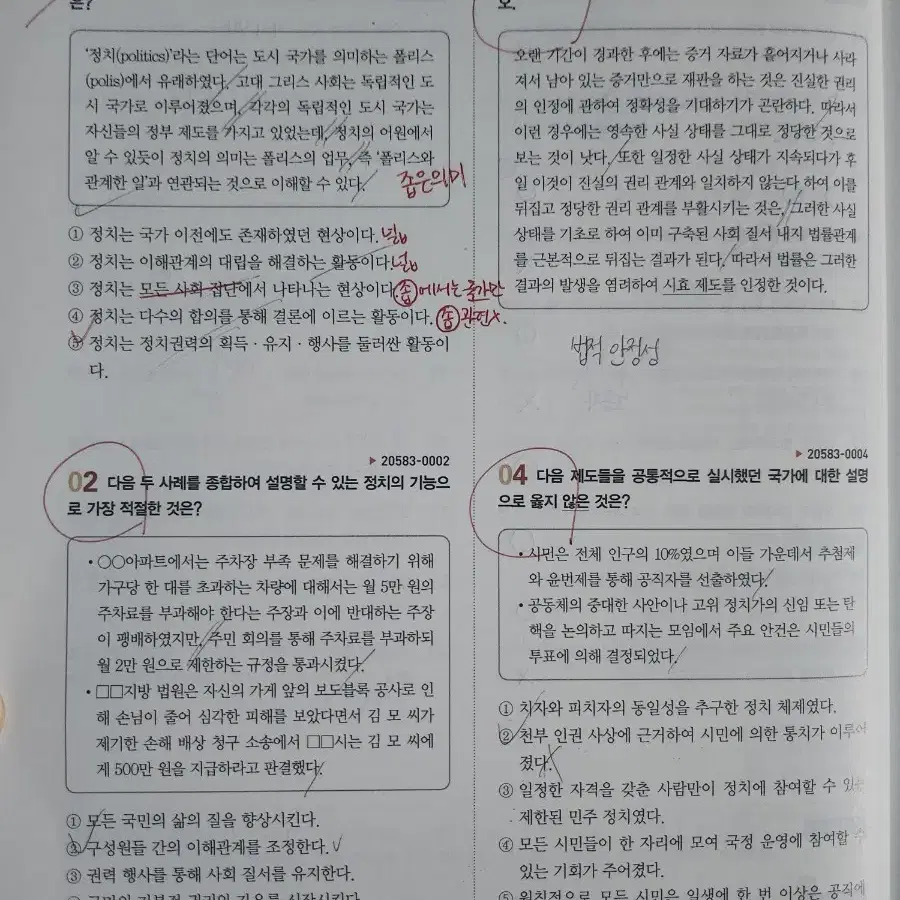 은?
'정치(politics)'라는 단어는 도시 국가를 의미하는 폴리스
(polis)에서 유래하였다. 고대 그리스 사회는 독립적인 도
시 국가로 이루어졌으며, 각각의 독립적인 도시 국가는
자신들의 정부 제도를 가지고 있었는데, 정치의 어원에서
알 수 있듯이 정치의 의미는 폴리스의 업무, 즉 '폴리스와
관계한 일'과 연관되는 것으로 이해할 수 있다.
좁은의미
① 정치는 국가 이전에도 존재하였던 현상이다. 넓
② 정치는 이해관계의 대립을 해결하는 활동이다. 넓
③ 정치는 모든 사회 집단에서 나타나는 현상이다. 좁 에서는 국가만
④ 정치는 다수의 합의를 통해 결론에 이르는 활동이다. 좁 관련X.
⑤ 정치는 정치권력의 획득·유지·행사를 둘러싼 활동이
다.
▶ 20583-0002
02 다음 두 사례를 종합하여 설명할 수 있는 정치의 기능으
로 가장 적절한 것은?
• ○○아파트에서는 주차장 부족 문제를 해결하기 위해
가구당 한 대를 초과하는 차량에 대해서는 월 5만 원의
주차료를 부과해야 한다는 주장과 이에 반대하는 주장
이 팽배하였지만, 주민 회의를 통해 주차료를 부과하되
월 2만 원으로 제한하는 규정을 통과시켰다.
• □□지방 법원은 자신의 가게 앞의 보도블록 공사로 인
해 손님이 줄어 심각한 피해를 보았다면서 김 모 씨가
제기한 손해 배상 청구 소송에서 □□시는 김 모 씨에
게 500만 원을 지급하라고 판결했다.
① 모든 국민의 삶의 질을 향상시킨다.
② 구성원들 간의 이해관계를 조정한다.
③ 권력 행사를 통해 사회 질서를 유지한다.
오.
오랜 기간이 경과한 후에는 증거 자료가 흩어지거나 사라
져서 남아 있는 증거만으로 재판을 하는 것은 진실한 권리
의 인정에 관하여 정확성을 기대하기가 곤란하다. 따라서
이런 경우에는 영속한 사실 상태를 그대로 정당한 것으로
보는 것이 낫다. 또한 일정한 사실 상태가 지속되다가 후
일 이것이 진실의 권리 관계와 일치하지 않는다 하여 이를
뒤집고 정당한 권리 관계를 부활시키는 것은, 그러한 사실
상태를 기초로 하여 이미 구축된 사회 질서 내지 법률관계
를 근본적으로 뒤집는 결과가 된다. 따라서 법률은 그러한
결과의 발생을 염려하여 시효 제도를 인정한 것이다.
법적 안정성
▶ 20583-0004
04 다음 제도들을 공통적으로 실시했던 국가에 대한 설명
으로 옳지 않은 것은?
• 시민은 전체 인구의 10%였으며 이들 가운데서 추첨제
와 윤번제를 통해 공직자를 선출하였다.
• 공동체의 중대한 사안이나 고위 정치가의 신임 또는 탄
핵을 논의하고 따지는 모임에서 주요 안건은 시민들의
투표에 의해 결정되었다.
① 치자와 피치자의 동일성을 추구한 정치 체제였다.
② 천부 인권 사상에 근거하여 시민에 의한 통치가 이루어
졌다.
③ 일정한 자격을 갖춘 사람만이 정치에 참여할 수 있는
제한된 민주 정치였다.
④ 모든 시민들이 한 자리에 모여 국정 운영에 참여할 수
있는 기회가 주어졌다.
⑤ 원칙적으로 모든 시민은 일생에 한 번 이상은 공직에